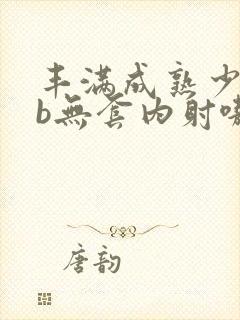 丰满成熟少
b無套内射嗷
唐韵